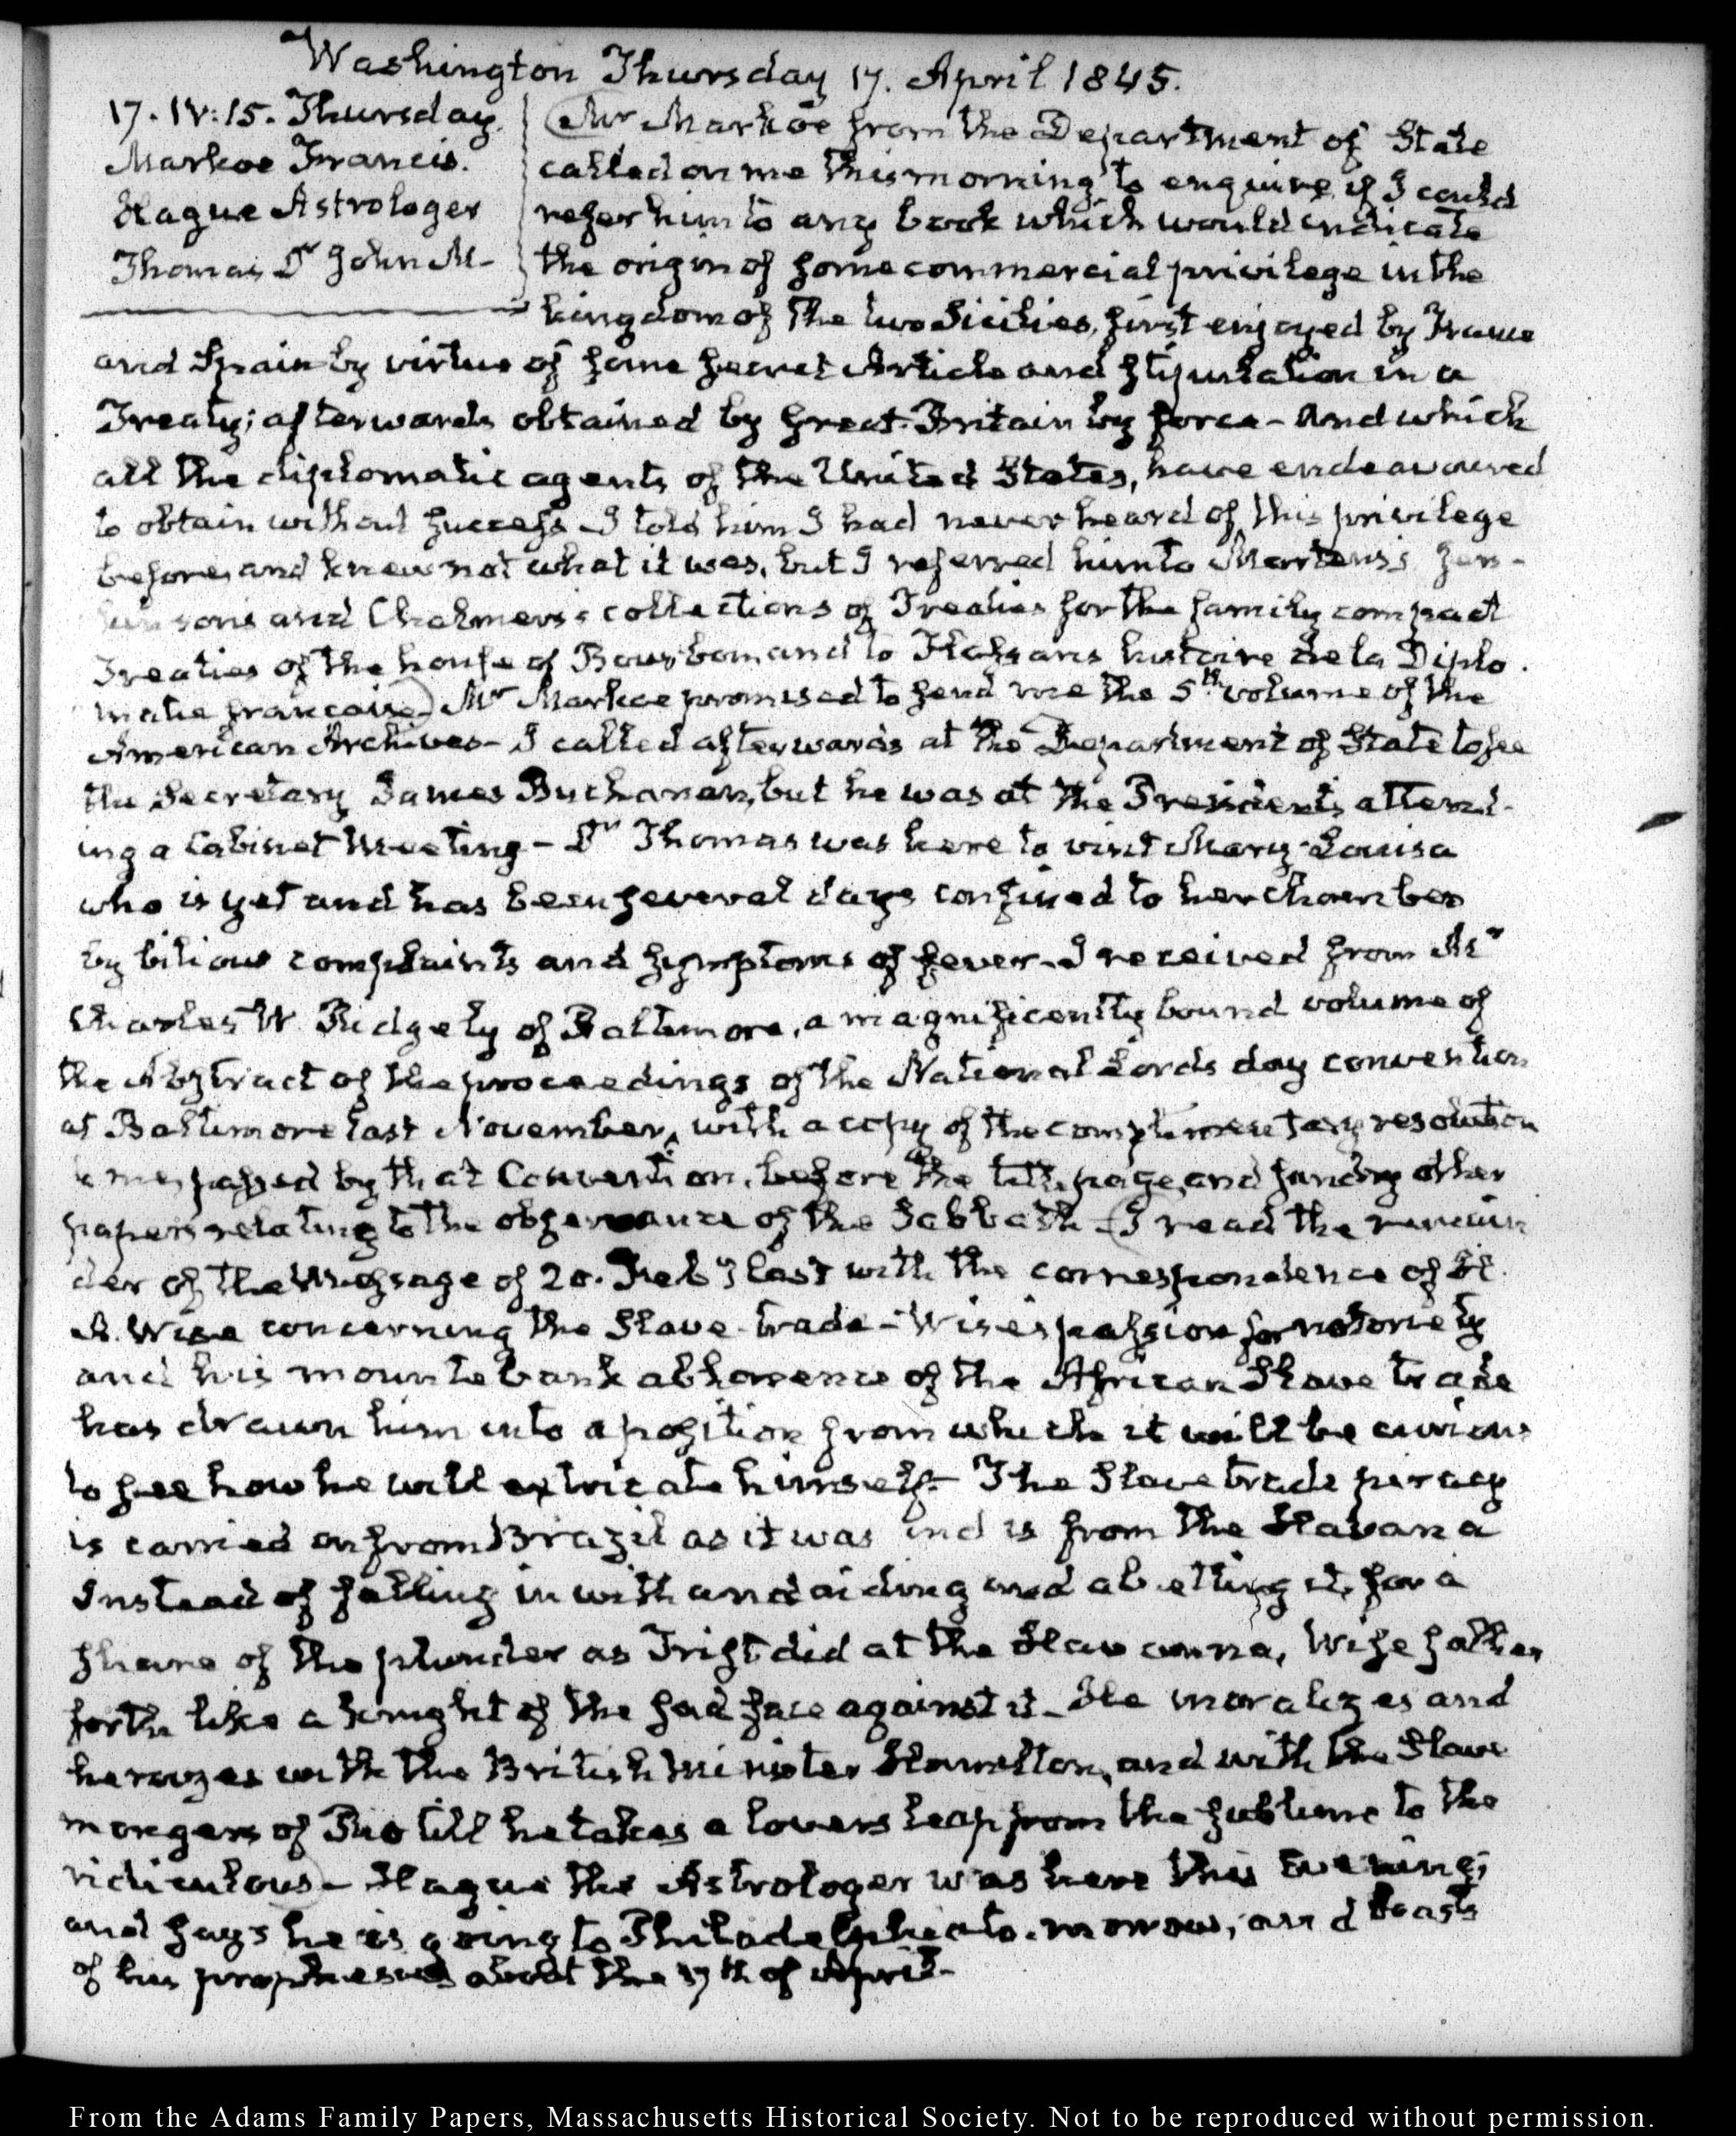 Washington Thursday 17. April 1845.
17. IV:15. Thursday.
Markoe Francis.
Hague Astrologer
Thomas Dr John M-
Mr Markoe from the Department of State
called on me this morning to enquire if I could
refer him to any book which would indicate
the origin of some commercial privilege in the
kingdom of the two Sicilies, first enjoyed by France
and Spain by virtue of some secret Article and stipulation in a
Treaty; afterwards obtained by Great-Britain by force - And which
all the diplomatic agents of the United States, have endeavoured
to obtain without success - I told him I had never heard of this privilege
before, and knew not what it was, but I referred him to Martens's
and Chalmers's collections of Treaties for the family compact
Treaties of the house of Bourbon and to Flassans histoire de la Diplo.
matie francaise - Mr Markoe promised to send me the 5th volume of the
American Archives - I called afterwards at the Department of State to see
the Secretary James Buchanan, but he was at the Presidents attend-
ing a Cabinet Meeting - Dr Thomas was here to visit Mary-Louisa
who is yet and has been several days confined to her chamber
by bilious complaints and symptoms of fever - I received from Mr
Charles W. Ridgely of Baltimore, a magnificently bound volume of
the Abstract of the proceedings of the National Lords day convention
at Baltimore last November, with a copy of the complimentary resolution
to me, passed by that Convention, before the title page, and sundry other
papers relating to the observance of the Sabbath - I read the remain
der of the Message of 20. Feby last with the correspondence of H.
A. Wise concerning the Slave-trade - Wise's passion for notoriety
and his mountebank abhorrence of the African Slave trade
has drawn him into a position from which it will be curious
to see how he will extricate himself - The Slave trade piracy
is carried on from Brazil as it was and is from the Havana
Instead of falling in with and aiding and abetting it, for a
share of the plunder as Trist did at the Havanna, Wise sallies
forth like a knight of the sad face against it - He moralizes and
heroizes with the British Minister Hamilton, and with the Slave
mongers of Rio till he takes a lovers leap from the sublime to the
ridiculous - Hague the Astrologer was here this Evening;
and says he is going to Philadelphia to-morrow, and boasts
of his prophesies about the 17th of April -
From the Adams Family Papers, Massachusetts Historical Society. Not to be reproduced without permission.